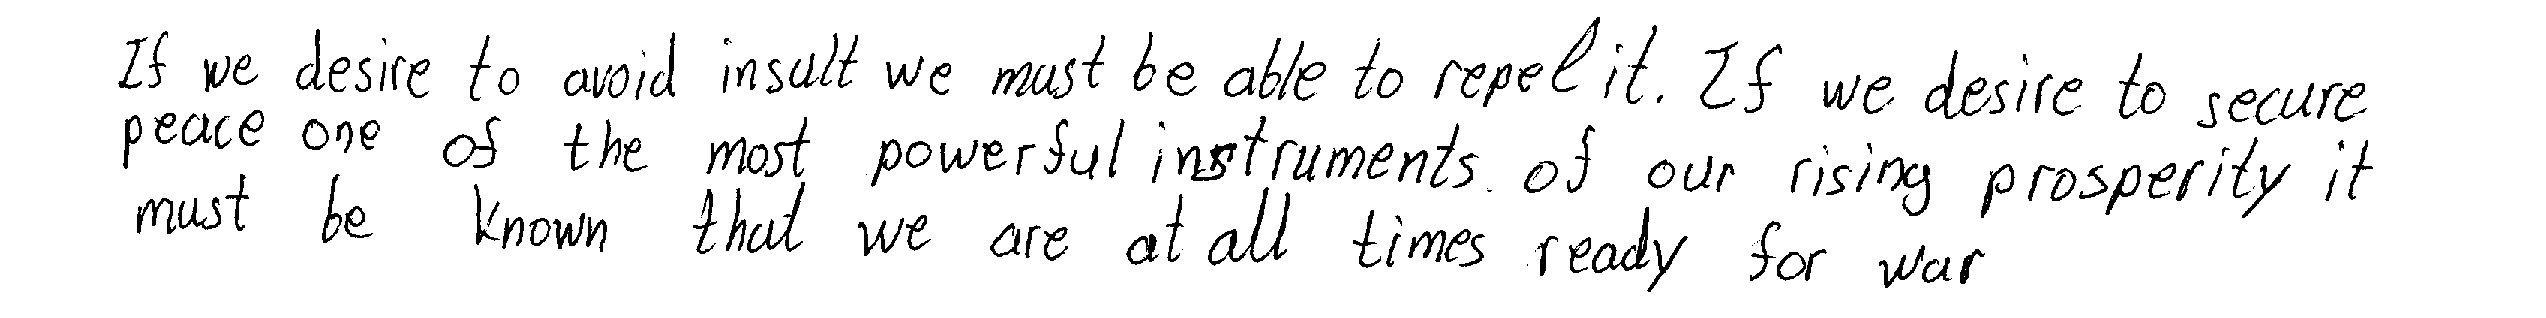 If we desire to avoid insult we must be able to repel it. If we desire to secure
peace one of the most powerful instruments of our rising prosperity it
must be known that we are at all times ready for war